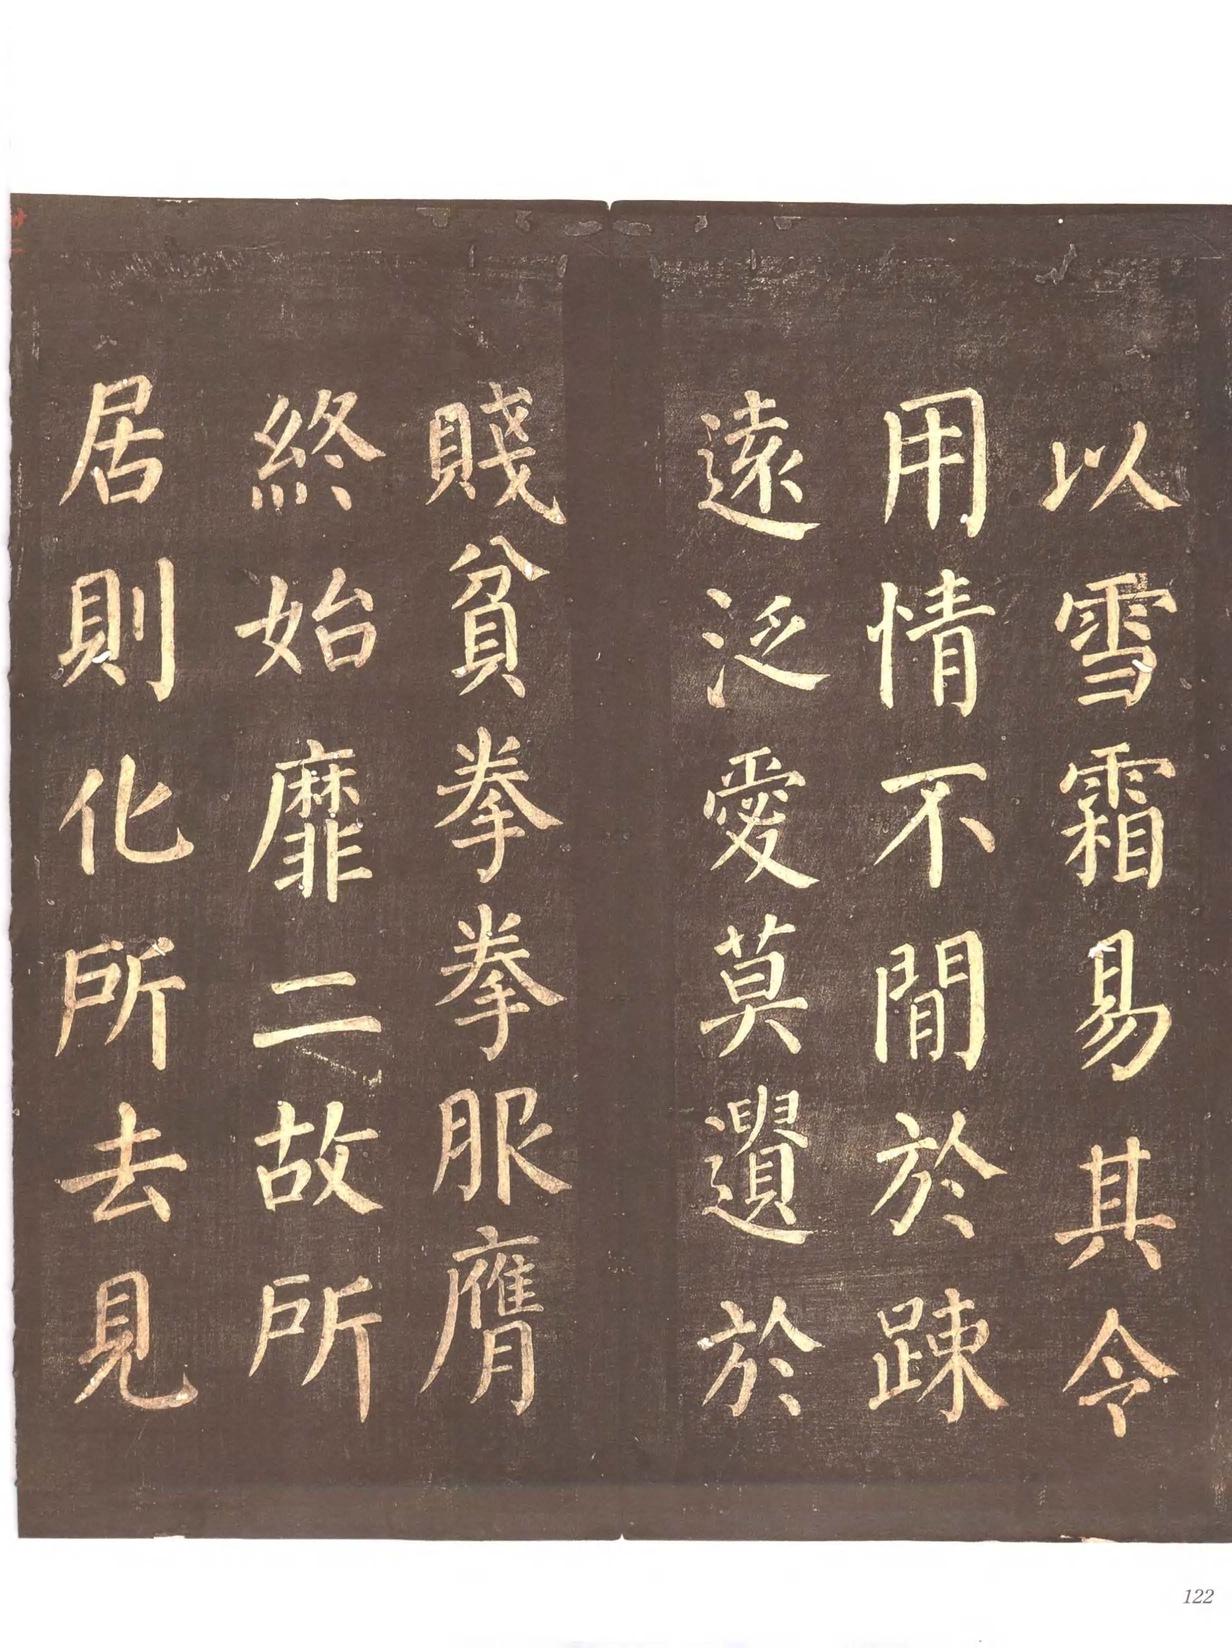 以雪霜易其令
用情不閒於踈
遠泛愛莫遺於
賤貧拳拳服膺
終始靡二故所
居則化所去見
122